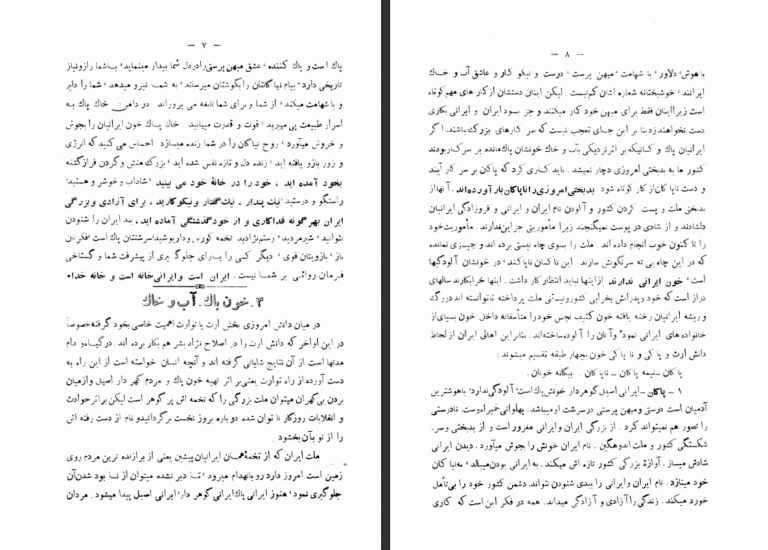 — ۷ —
پاك است و پاك كننده٬ عشق میهن پرستی را در دل شما بیدار مینماید٬ باشما رازونیاز
تاریخی دارد٬ پیام نیاکانتان را بگوشتان میرساند٬ به شما نیرو میدهد٬ شما را دلیر
و با شهامت میکند٬ از شما و برای شما نابغه می پروراند. در دامن خاك پاك به
اسرار طبیعت پی میبرید٬ قوت و قدرت مییابید. خاك پاك خون ایرانیان را بجوش
و خروش میآورد٬ روح نیاکان را در شما زنده میسازد. احساس می کنید که انرژی
و زور بازو یافته اید٬ زنده دل و تازه نفس شده اید٬ بزرگ منش و گردن فراز گشته
بخود آمده اید ، خود را در خانهٔ خود می بینید ٬ شاداب و خوشر و هستید٬
راستگو و درستید٬ نیك پندار ، نیك گفتار و نیکوکارید ، برای آزادی و بزرگی
ایران بهر گونه فداکاری و از خود گذشتگی آماده اید ، بد ایران را شنودن
نتوانید٬ شیرمردید٬ رستم نژادید تخمه کورس و داریوشید سرشتتان پاك است افکارتان
باز٬ بازویتان قوی٬ دیگر کسی را یارای جلو گیری از پیشرفت شما و گستاخی
فرمان روائی بر شما نیست. ایران است و ایرانی خانه است و خانه خدا.
۳. خون پاك. آب و خاك
در میان دانش امروزی بخش ارث یا توارث اهمیت خاصی بخود گرفته خصوصاً
در این اواخر که دانش ارث را در اصلاح نژاد بشر هم بکار برده اند. در گیاه و دام
مدتها است از آن نتایج شایانی گرفته اند و آنچه انسان خواسته است از این راه به
دست آورده از راه توارث یعنی بر اثر تهیه خون پاك و مردم گهر دار اصیل و از میان
بردن بی گهران میتوان ملت بزرگی را که تخمه اش پر گوهر است لیکن بر اثر حوادث
و انقلابات روزگار نا توان شده دوباره بروز نخست برگردانید و نام از دست رفته اش
را از نو بآن بخشود.
ملت ایران که از تخمهٔ همان ایرانیان پیشین یعنی از برازنده ترین مردم روی
زمین است امروز دارد رو بانهدام میرود٬ تا دیر نشده میتوان از نابود شدن آن
جلوگیری نمود٬ هنوز ایرانی پاك ایرانی گوهر دار٬ ایرانی اصیل پیدا میشود. مردان
— ۸ —
باهوش٬ دلاور٬ با شهامت٬ میهن پرست٬ درست و نیکو کار و عاشق آب و خاك
ایرانند٬ خوشبختانه شماره آنان کم نیست. لیکن اینان دستشان از کار های مهم کوتاه
است زیرا اینان فقط برای میهن خود کار میکنند و جز بسود ایران و ایرانی بکاری
دست نخواهند زد بنا بر این جای تعجب نیست که سر کارهای بزرگ نباشند. اگر
ایرانیان پاك و کسانیکه بر اثر نزدیکی بآب و خاك خونشان پاك مانده بر سرك بودند
کشور ما به بدبختی امروزی دچار نمیشد. باید کاری کرد که پاکان بر سر کار آیند
و دست ناپاکان از کار کوتاه شود بدبختی امروزی را ناپاکان بار آورده اند. آنها از
بدبختی ملت و پست کردن کشور و آلودن نام ایران و ایرانی و فروزادگی ایرانیان
دلشادند و از شادی در پوست نمیگنجند زیرا مأموریتی جز این ندارند. مأموریت خود
را تا کنون خوب انجام داده اند. ملت را بسوی چاه نیستی برده اند و چیزی نمانده
که در این چاه بی ته سرنگونش سازند. این ناکسان ناپاکند٬ در خونشان آلودگیها
است٬ خون ایرانی ندارند از اینها نباید انتظار کار داشت. اینها خرابکارند سالهای
دراز است که خود دیده اند بخرابی کشور و نیستی ملت پرداخته تا توانسته اند در رگ
و ریشه ایرانیان رخنه یافته خون کثیف نجس خود را متأسفانه داخل خون بسیاری از
خانواده های ایرانی نموده و آنان را آلوده ساخته اند. بنابر این اهالی ایران از لحاظ
دانش ارث و پاکی و نا پاکی خون بچهار طبقه تقسیم میشوند:
پاکان — نیمه پاکان — ناپاکان . بیگانه خونان.
۱ — پاکان — ایرانی اصیل گوهر دار خونش پاك است٬ آلودگی ندارد٬ باهوشترین
آدمیان است درستی و میهن پرستی در سرشت او میباشد. پهلوانی خمیرۀ اوست نادرستی
را تصور هم نمیتواند کرد. از بزرگی ایران و ایرانی مغرور است و از بدبختی و سر-
شکستگی کشور و ملت اندوهگین. نام ایران خونش را بجوش میآورد. دیدن ایرانی
شادش میسازد. آوازۀ بزرگی کشور تازه اش میکند. به ایرانی بودن میبالد٬ به نیاکان
خود مینازد. نام ایران و ایرانی را ببدی شنودن نتواند. دشمن کشور خود را بی تأمل
خورد میکند. زندگی را آزادی و آزادگی میداند. همه در فکر این است که کاری